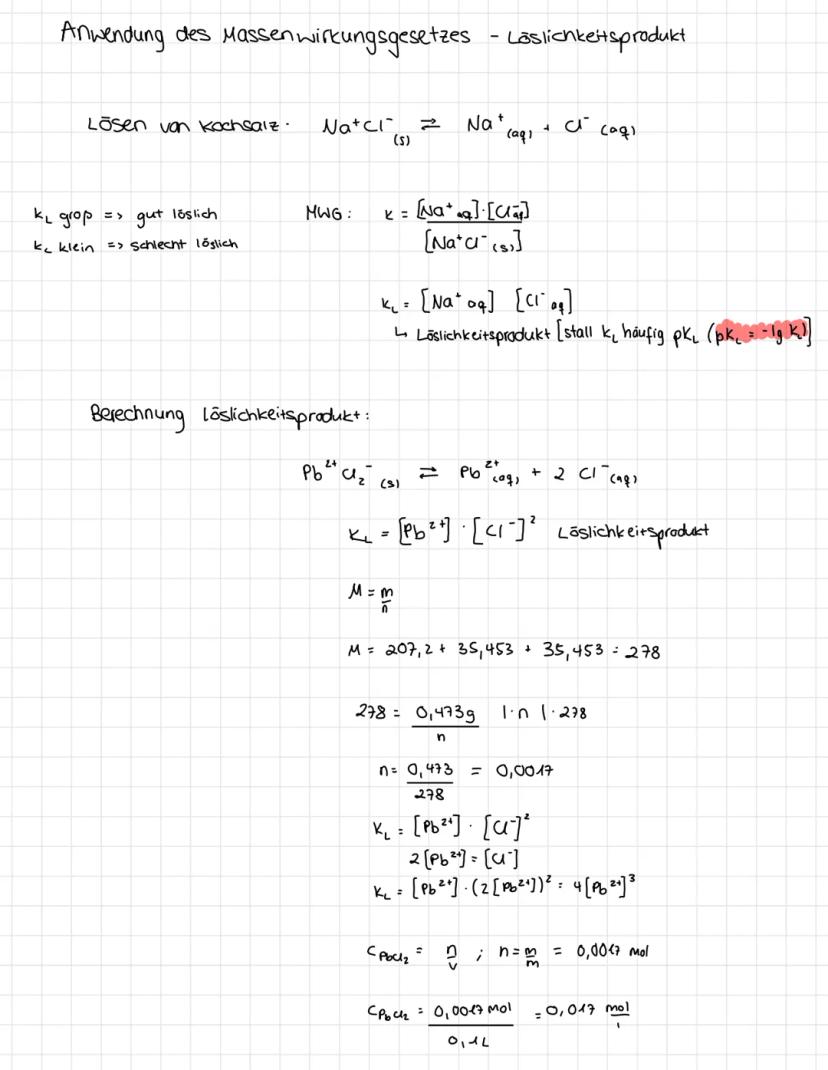 Anwendung des Massenwirkungsgesetzes - Löslichkeitsprodukt
Lösen von Kochsalz. Na⁺Cl⁻(s) ⇌ Na⁺(aq) + Cl⁻(aq)
kL groß => gut löslich
kL klein => schlecht löslich
MWG: K = [Na⁺aq]·[Cl⁻aq] / [Na⁺Cl⁻(s)]
KL = [Na⁺aq] [Cl⁻aq]
↳ Löslichkeitsprodukt [stall KL häufig pKL (pKL = -lg KL)]
Berechnung Löslichkeitsprodukt:
Pb²⁺Cl₂⁻(s) ⇌ Pb²⁺(aq) + 2 Cl⁻(aq)
KL = [Pb²⁺] · [Cl⁻]² Löslichkeitsprodukt
M = m/n
M = 207,2 + 35,453 + 35,453 = 278
278 = 0,473g / n |·n |·278
n = 0,473 / 278 = 0,0017
KL = [Pb²⁺] · [Cl⁻]²
2[Pb²⁺] = [Cl⁻]
KL = [Pb²⁺] · (2[Pb²⁺])² = 4[Pb²⁺]³
cPbCl₂ = n/v ; n = m/m = 0,0017 mol
cPbCl₂ = 0,0017 mol / 0,1L = 0,017 mol/l